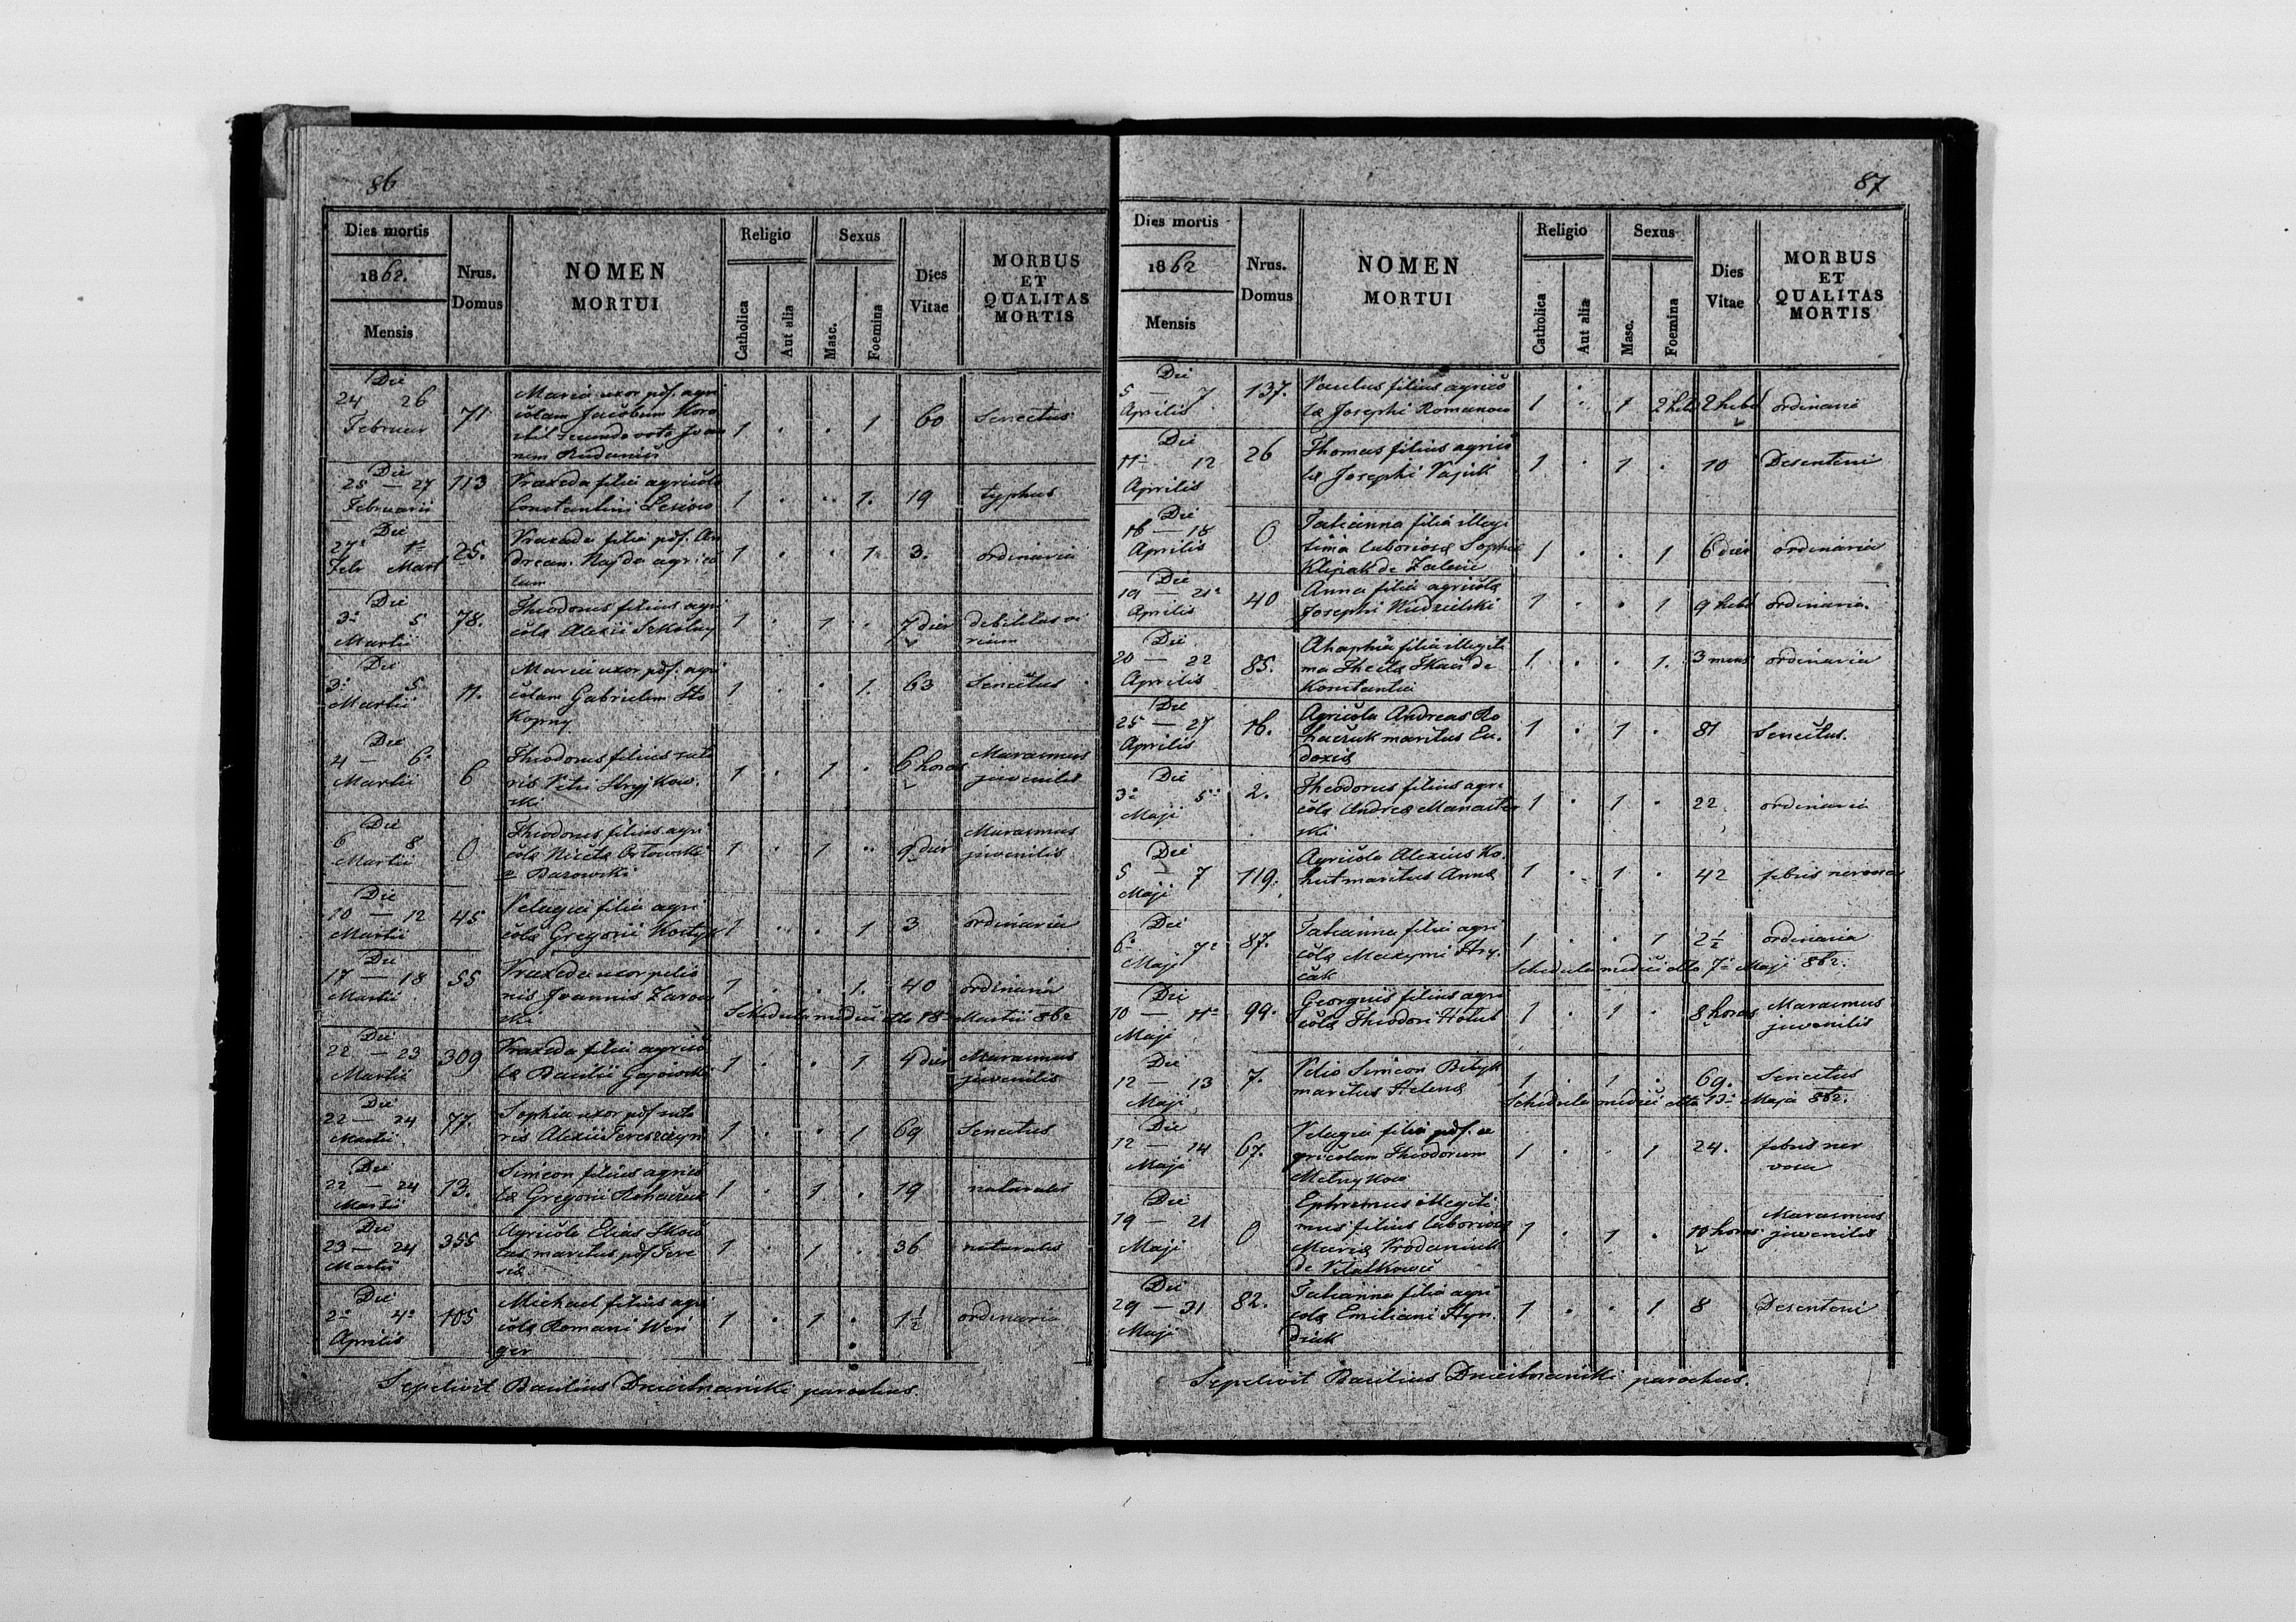 86
Dies mortis
1862.
Mensis
Nrus.
Domus
NOMEN
MORTUI
Religio
Catholica
Aut alia
Sexus
Masc.
Foemina
Dies
Vitae
MORBUS
ET
QUALITAS
MORTIS
Die
24 26
Februar
71
Maria uxor pdf. agri
colam Jacobum
secundo voto Joan
nem
1 . . 1 60 Senectus
Die
25 — 27
Februarii
113
Praxeda filia agricola
Constantini Lesiow
1 . . 1. 19 typhus
Die
27 1
Febr Mart
25.
Praxeda filia pdf. An
dream. Najda agrico
lam
1 . . 1 3. ordinaria
Die
3 5
Martii
78.
Theodorus filius agri
cola Alexii Szkolny
1 . 1 . 7 dier debilitas vi
rium
Die
3 5
Martii
11.
Maria uxor pdf. agri
colam Gabrielem
1 . . 1. 63 Senectus
Die
4 — 6
Martii
6
Theodorus filius suto
ris Petri Stryjkow
ski
1 . 1 . 6 horas Marasmus
juvenilis
Die
6 8
Martii
0
Theodorus filius agri
cola Niceta Orlowski
e Barowski
1 . 1 . 9 dier Marasmus
juvenilis
Die
10 — 12
Martii
45
Pelagia filia agri
cola Gregorii Kostyk
1 . . 1 3 ordinaria
Die
17 — 18
Martii
55
Praxeda uxor pelio
nis Joannis
ski
1 . . 1. 40 ordinaria
Schedula medici dtto 18 Martii 862
Die
22 — 23
Martii
309
Praxeda filia agrico
la Basilii Gajowski
1 . . 1 9 dier Marasmus
juvenilis
Die
22 — 24
Martii
77.
Sophia uxor pdf suto
ris Alexii Tereszczyn
1 . . 1 69 Senectus
Die
22 — 24
Martii
13.
Simeon filius agrico
la Gregorii Rohaczuk
1 . 1 . 19 naturalis
Die
23 — 24
Martii
355
Agricola Elias
maritus pdf
1 . 1 . 36 naturalis
Die
2 4
Aprilis
105
Michael filius agri
cola Romani Weri
ger
1 . 1 . 1½ ordinaria
Sepelivit Basilius parochus
87
Dies mortis
1862
Mensis
Nrus.
Domus
NOMEN
MORTUI
Religio
Catholica
Aut alia
Sexus
Masc.
Foemina
Dies
Vitae
MORBUS
ET
QUALITAS
MORTIS
Die
5 — 7
Aprilis
137.
Paulus filius agrico
la Josephi Romanow
1 . 1 2 heb 2 hebd ordinaria
Die
11 12
Aprilis
26
Thomas filius agrico
la Josephi Pasjuk
1 . 1 . 10 Desenteri
Die
16 — 18
Aprilis
0
Tatianna filia illegi
tima laboriosa Sophia
Klepak de Zalesie
1 . . 1 6 dier ordinaria
Die
19 — 21
Aprilis
40
Anna filia agricola
Josephi Nidzielski
1 . . 1 9 hebd ordinaria.
Die
20 — 22
Aprilis
85.
Ahaphia filia illegiti
ma Thecla Tkacz de
Konstantia
1 . . 1. 3 mens ordinaria
Die
25 — 27
Aprilis
16.
Agricola Andreas Ro
haczuk maritus Eu.
doxia
1 . 1 . 81 Senectus.
Die
3 5
Maji
2.
Theodorus filius agri
cola Andrea Manaster
ski
1 . 1 . 22 ordinaria
Die
5 — 7
Maji
119.
Agricola Alexius Ko.
hut maritus Anna
1 . 1 . 42 febris nervosa
Die
6 7
Maji
87.
Tatianna filia agri
cola Maxymi Hry.
cak
1 . . 1 2½ ordinaria
Schedula medici dtto 7 Maji 862.
Die
10 — 11
Maji
99.
Georgius filius agri
cola Theodori Holub
1 . 1 . 8 horas Marasmus
juvenilis
Die
12 — 13
Maji
7.
Pelio Simeon Bilyk
maritus Helena
1 . 1 . 69. Senectus
Schedula medici dtto 13 Maja 862.
Die
12 — 14
Maji
67.
Pelagia filia pdf. a
gricolam Theodorum
Melnykow
1 . . 1 24. febris ner
vosa
Die
19 — 21
Maji
0
Ephremus illegiti
mus filius laboriosa
Maria Prodaniuk
de
1 . 1 . 10 horas Marasmus
juvenilis
Die
29 — 31
Maji
82.
Tatianna filia agri
cola Emiliani Hyn.
diuk
1 . . 1 8 Desenteri
Sepelivit Basilius parochus.